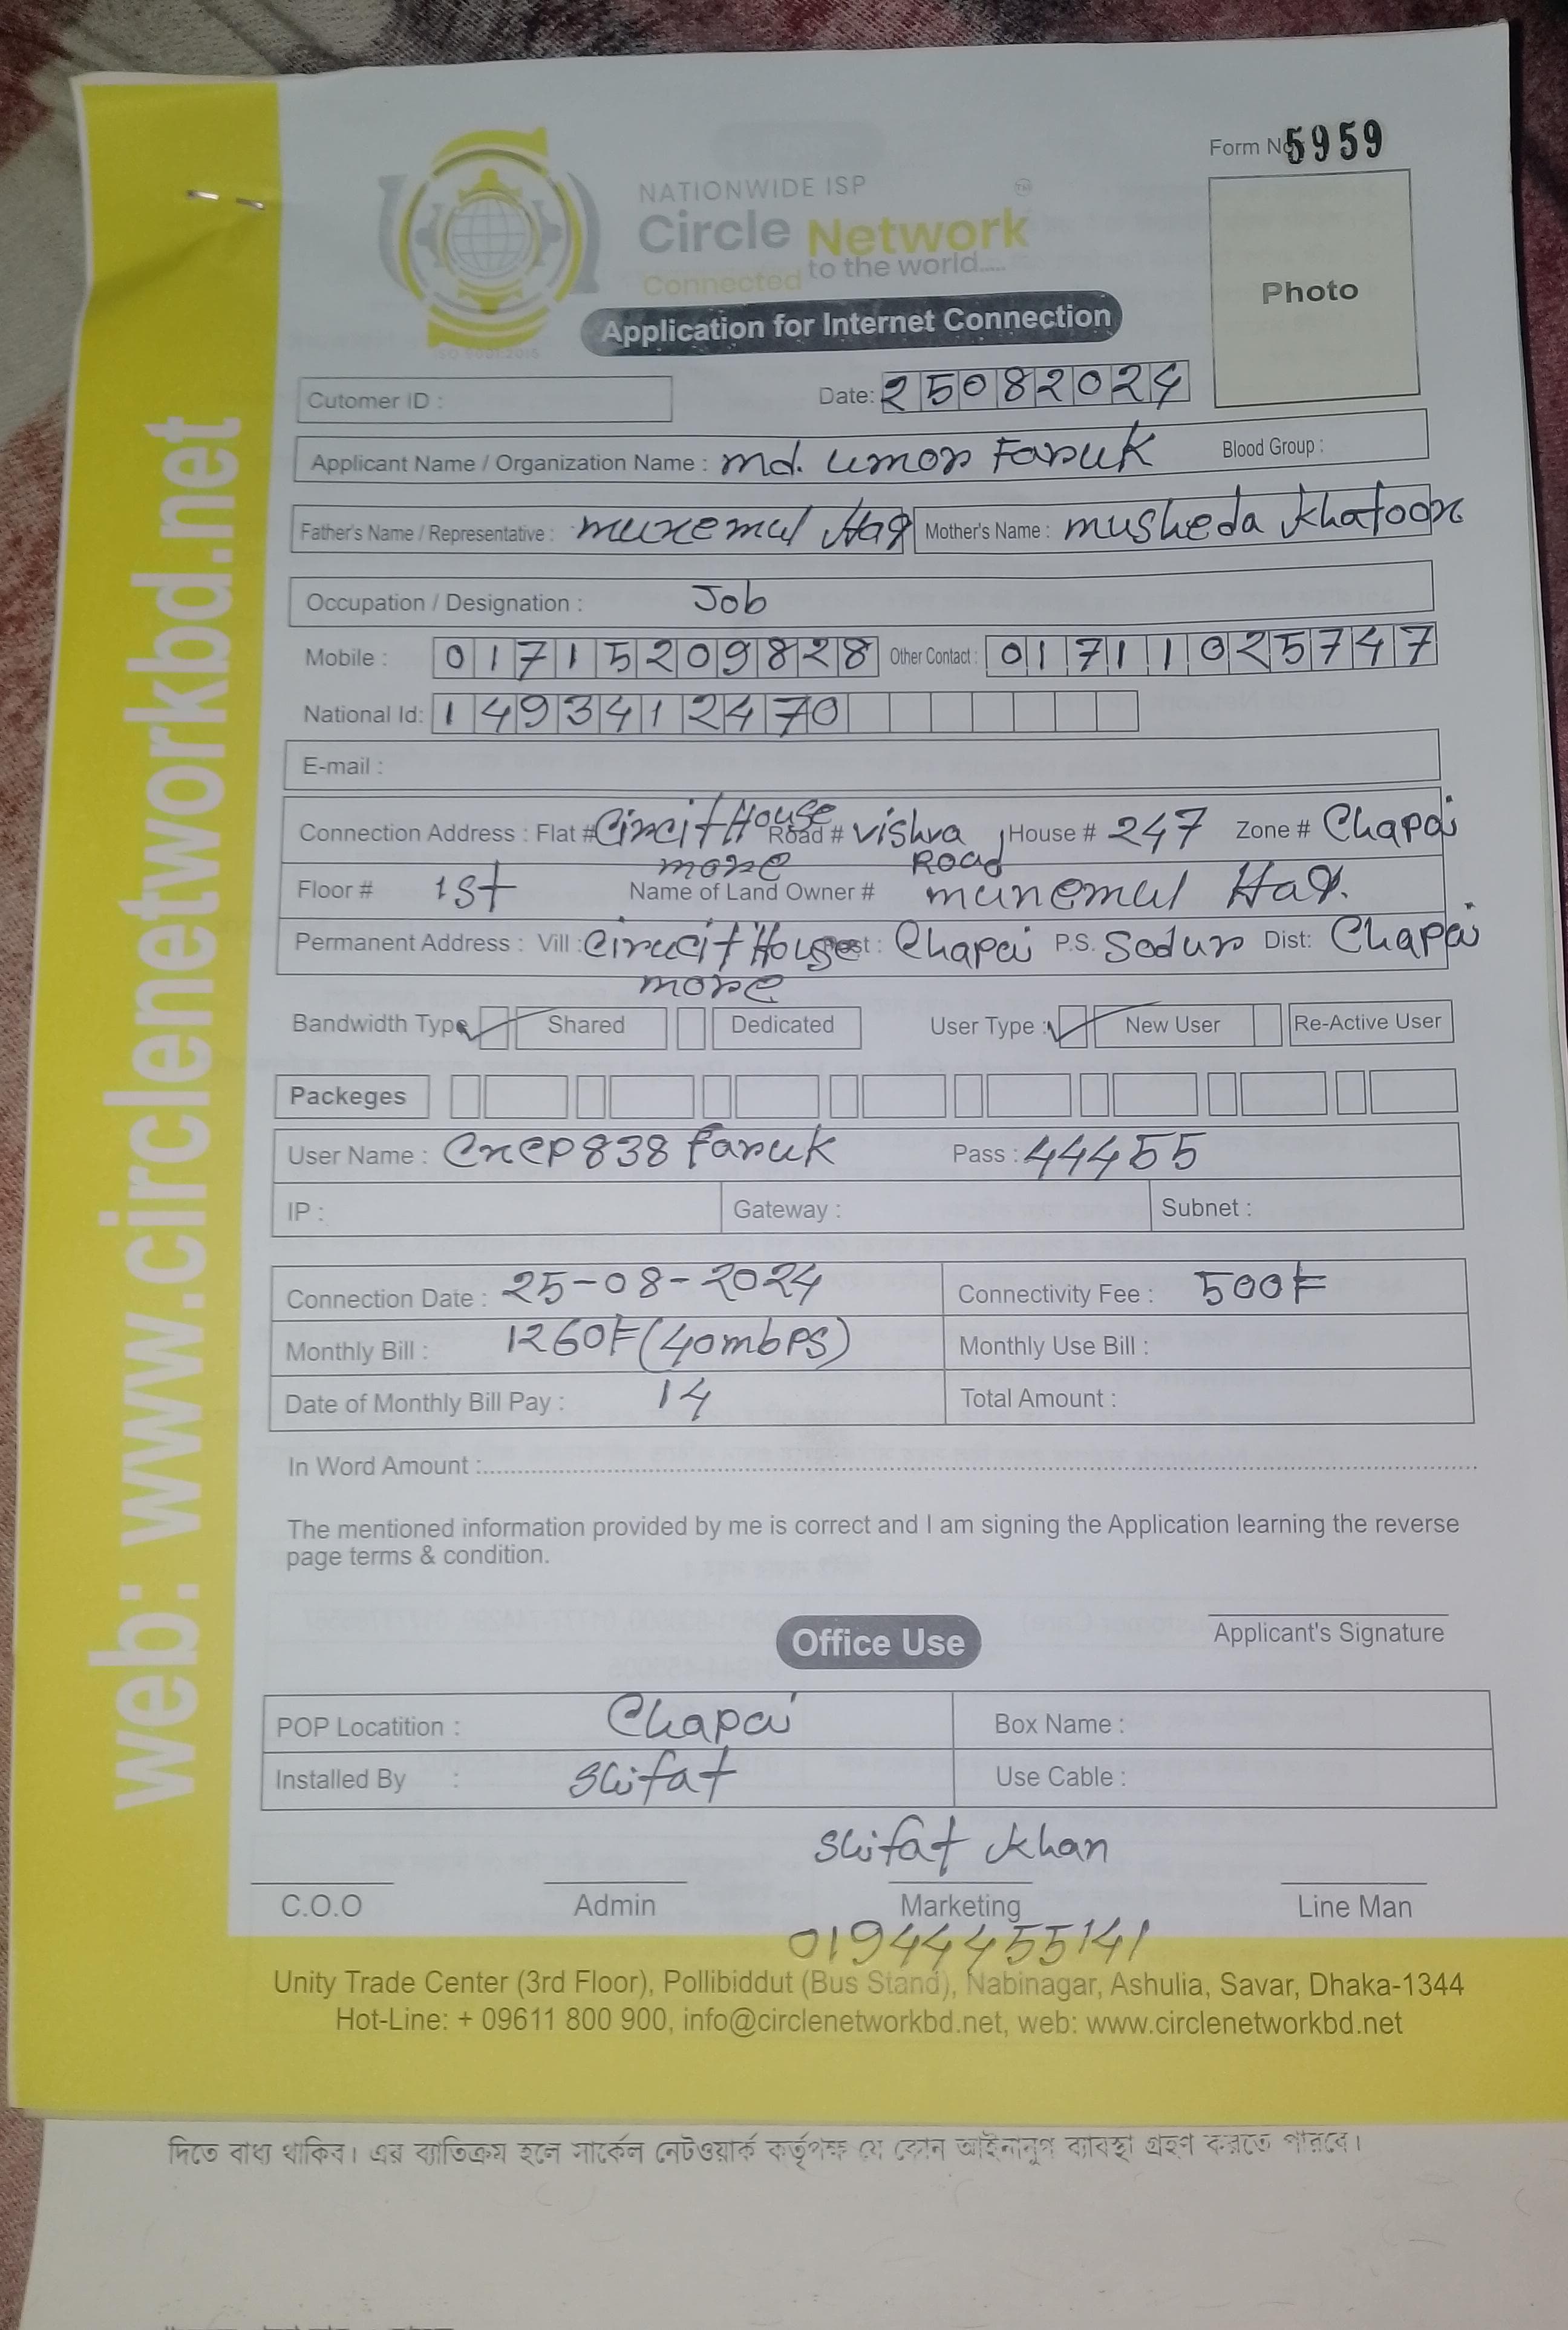 Form No 5959
NATIONWIDE ISP
TM
Circle Network
Connected to the world.....
ISO 9001:2015
Photo
Application for Internet Connection
Cutomer ID :
Date: 25082024
Applicant Name / Organization Name : md. umor Faruk Blood Group :
Father's Name / Representative : munemul Haq Mother's Name : musheda Khatoon
Occupation / Designation : Job
Mobile : 01715209828 Other Contact : 01711025747
National Id: 1493412470
E-mail :
Connection Address : Flat # Circit House Road # vishva House # 247 Zone # Chapai
more Road
Floor # 1st Name of Land Owner # munemul Haq.
Permanent Address : Vill : Circuit House Post : Chapai P.S. Sodur Dist: Chapai
more
Bandwidth Type Shared Dedicated User Type : New User Re-Active User
Packeges
User Name : CnCP838 faruk Pass : 44455
IP : Gateway : Subnet :
Connection Date : 25-08-2024 Connectivity Fee : 500F
Monthly Bill : 1260F (40mbPS) Monthly Use Bill :
Date of Monthly Bill Pay : 14 Total Amount :
In Word Amount :
The mentioned information provided by me is correct and I am signing the Application learning the reverse
page terms & condition.
Applicant's Signature
Office Use
POP Locatition : Chapai Box Name :
Installed By : Shifat Use Cable :
Shifat Khan
C.O.O Admin Marketing Line Man
01944455141
Unity Trade Center (3rd Floor), Pollibiddut (Bus Stand), Nabinagar, Ashulia, Savar, Dhaka-1344
Hot-Line: + 09611 800 900, info@circlenetworkbd.net, web: www.circlenetworkbd.net
web: www.circlenetworkbd.net
দিতে বাধ্য থাকিব। এর ব্যতিক্রম হলে সার্কেল নেটওয়ার্ক কর্তৃপক্ষ যে কোন আইনানুগ ব্যবস্থা গ্রহণ করতে পারবে।